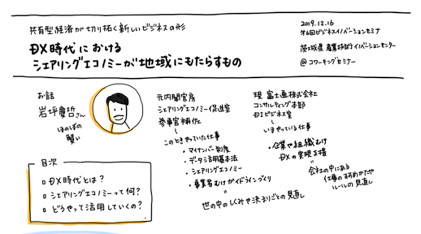 共有型経済が切り拓く新しいビジネスの形
DX時代における
シェアリングエコノミーが地域にもたらすもの
2019.12.16
ビジネスイノベーションセミナ
茨城県 産業技術イノベーションセンター
@コワーキングセミナー
お話
岩坪慶哲さん
ほのぼの
賢い
元内閣官房
シェアリングエコノミー促進室
参事官補佐
このときやっていた仕事
・マイナンバー制度
・データ活用基本法
・シェアリングエコノミー
・事業者むけガイドラインづくり
世の中のしくみや決まりごとの見直し
現 富士通株式会社
コンサルティング本部
ビジネス室
いまやっている仕事
・企業や組織むけ
DXの実現支援
会社の中にある
仕事の進めかたや
ルールの見直し
目次
DX時代とは?
シェアリングエコノミーって何?
どうやって活用していくの?